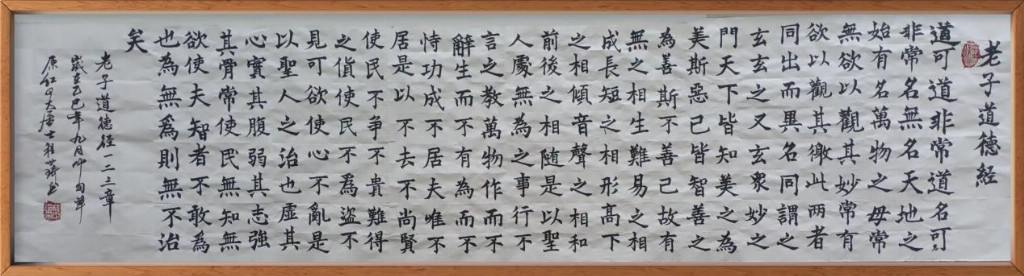 老子道德經
道可道非常道名可
非常名無名天地之
始有名萬物之母常
無欲以觀其妙常有
欲以觀其徼此两者
同出而異名同謂之
玄玄之又玄眾妙之
門天下皆知美之為
美斯惡已皆智善之
為善斯不善已故有
無之相生難易之相
成長短之相形高下
之相傾音聲之相和
前後之相随是以聖
人處無為之事行不
言之教萬物作而不
辭生而不有為而不
恃功成不居夫唯不
居是以不去不尚賢
使民不争不貴難得
之貨使民不為盜不
見可欲使心不亂是
以聖人之治也虛其
心實其腹弱其志強
其骨常使民無知無
欲使夫智者不敢為
也為無為則無不治
矣
老子道德經一二三章
乙巳年九月